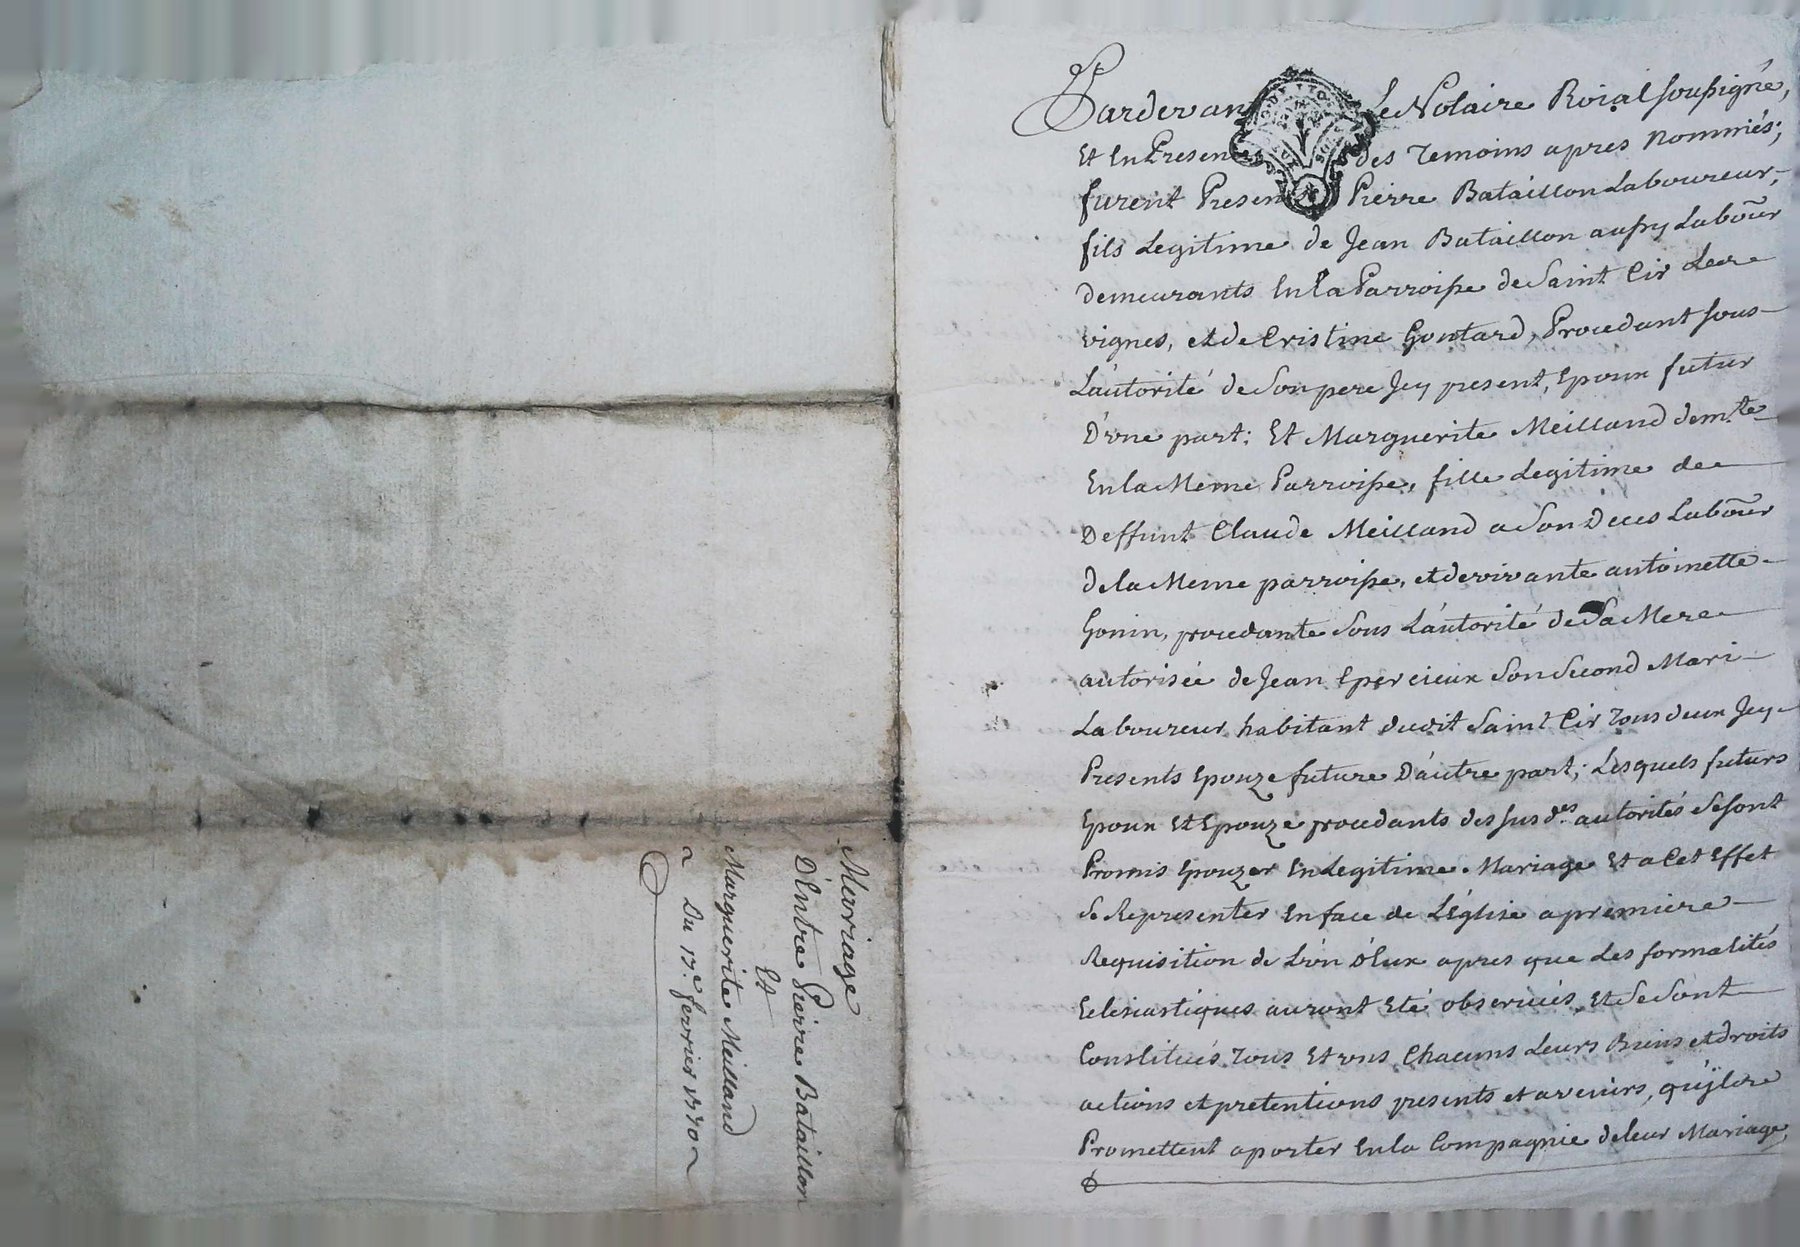 Mariage
D'Entre Pierre Bataillon
Et
Marguerite Meilland
Du 17.e fevrier 1770
Pardevant Le Notaire Roial soussigné,
Et En Presence des Temoins apres nommés;
furent Presents Pierre Bataillon Laboureur,
fils Legitime de Jean Bataillon aussy Labour
demeurants En La Parroisse de Saint Cir Les
vignes, et de Cristine Goutard, Procedant sous
L'autorité de Son pere Jcy present, Epoux futur
D'vne part; Et Marguerite Meilland demte
En la Meme Parroisse, fille Legitime de
Deffunt Claude Meilland a Son Deces Labour
de la Meme parroisse, et de vivante antoinette
Gonin, procedante Sous L'autorité de Sa Mere
autorisée de Jean Epercieux Son Second Mari
Laboureur habitant dudit Saint Cir Tous deux Jcy
Presents Epouze future D'autre part; Lesquels futurs
Epoux Et Epouze procedants des sus d.es autorités Se sont
Promis Epouzer En Legitime Mariage Et a Cet Effet
Se Representer En face de L'Eglise a premiere
Requisition de L'vn D'Eux apres que Les formalités
Eclesiastiques auront Eté observées, Et Se Sont
Constitués Tous Et vns Chacuns Leurs Biens et droits
actions et pretentions presents et avenirs, qu'jls
Promettent aporter En la Compagnie de leur Mariage,